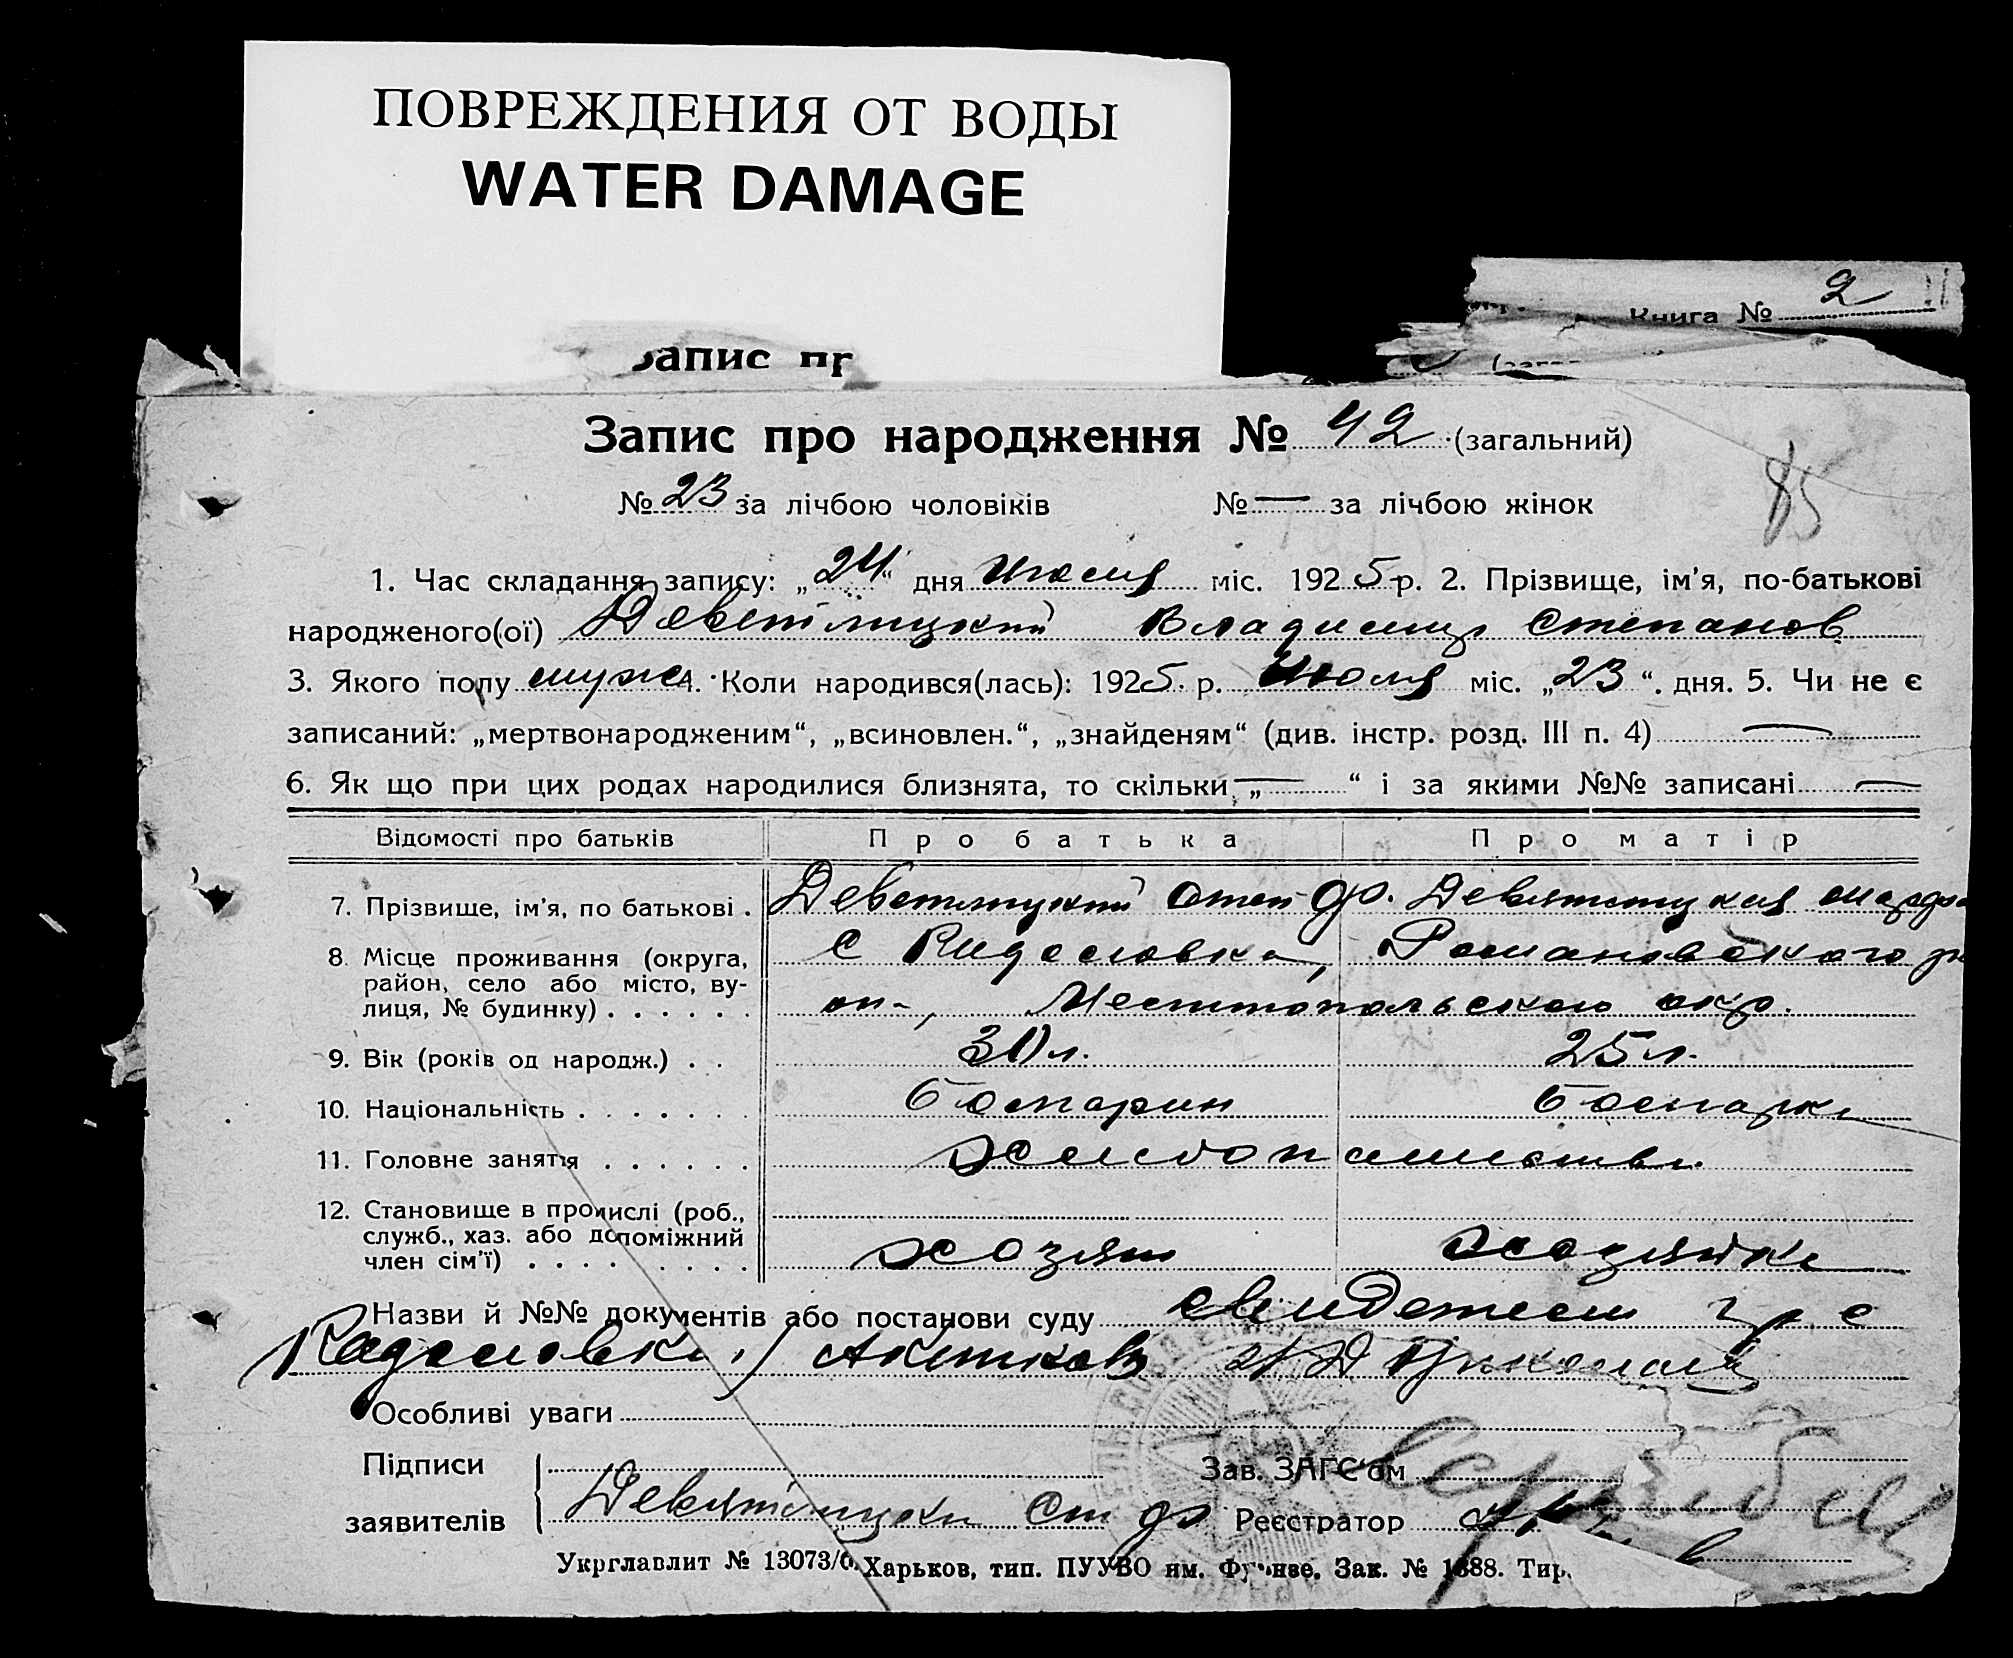 ПОВРЕЖДЕНИЯ ОТ ВОДЫ
WATER DAMAGE
Книга № 2
Запис пр
Запис про народження № 42 (загальний)
85
№ 23 за лічбою чоловіків № — за лічбою жінок
1. Час складання запису: „24“ дня Июля міс. 1925 р. 2. Прізвище, ім’я, по-батькові
народженого(ої) Деветлицкий Владимир Степанов
3. Якого полу муж 4. Коли народився(лась): 1925 р. Июля міс. „23“. дня. 5. Чи не є
записаний: „мертвонародженим“, „всиновлен.“, „знайденям“ (див. інстр. розд. III п. 4) —
6. Як що при цих родах народилися близнята, то скільки „—“ і за якими №№ записані —
Відомості про батьків Про батька Про матір
7. Прізвище, ім’я, по батькові . Деветлицкий Степ Фр. Девятлицкая
8. Місце проживання (округа, с Радоловка, Романовского
район, село або місто, ву-
лиця, № будинку) . . . . . . Мелитопольского окр.
9. Вік (років од народж.) . . 30 л. 25 л.
10. Національність . . . . . . . болгарин болгарка
11. Головне заняття . . . . . . хлебопашество
12. Становище в промислі (роб.,
служб., хаз. або допоміжний
член сім’ї) . . . . . . . . . хозяин хозяйка
Назви й №№ документів або постанови суду с
Радоловки,
Особливі уваги
Підписи Зав. ЗАГС’ом
заявителів Ст Реєстратор
Укрглавлит № 13073/6. Харьков, тип. ПУУВО им. Фрунзе. Зак. № 1888. Тир.